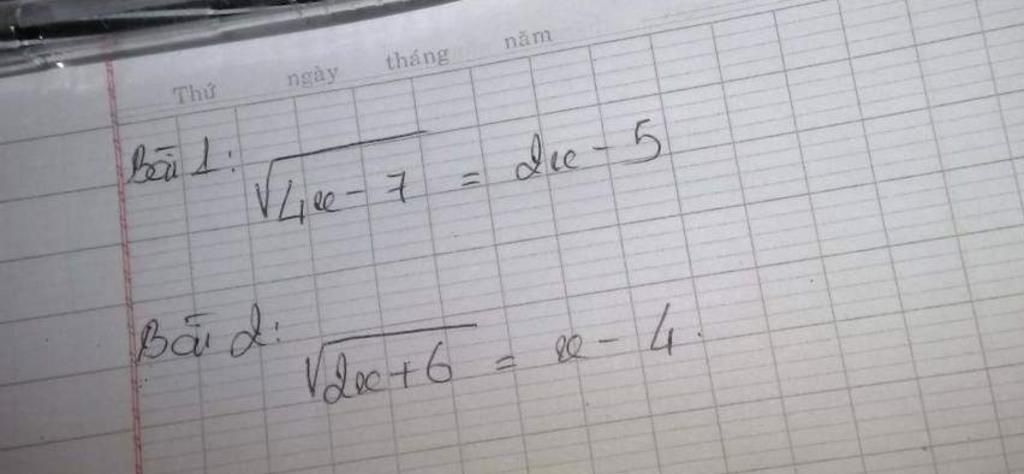 Thứ ngày tháng năm
Bài 1: √4x - 7 = 2x - 5
Bài 2: √2x + 6 = x - 4.